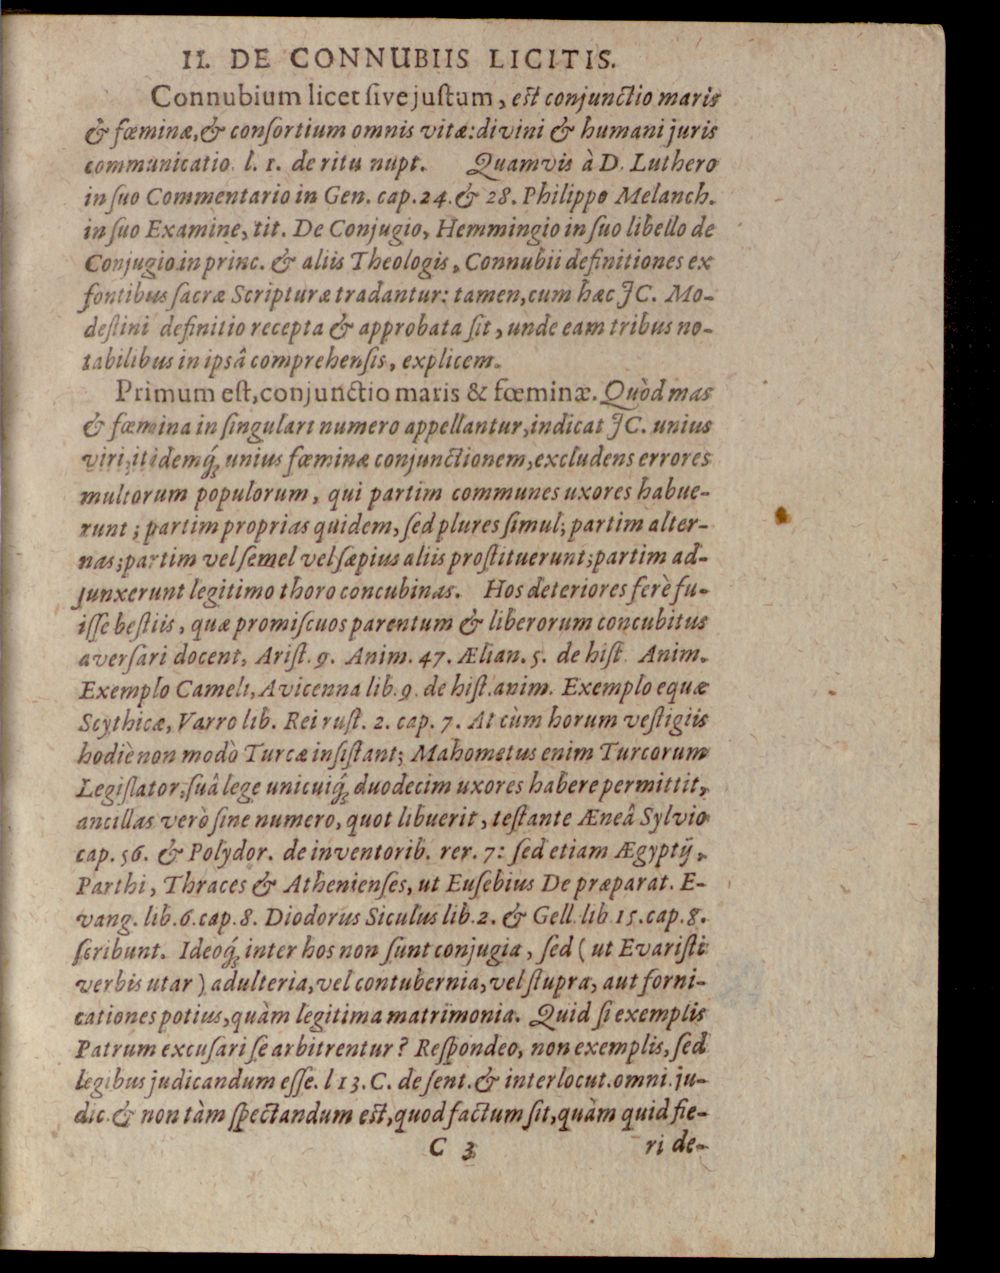 II. DE CONNUBIIS LICITIS.
Connubium licet ſive juſtum, est conjunctio maris
& fœminæ, & conſortium omnis vitæ: divini & humani juris
communicatio. l. 1. de ritu nupt. Quamvis à D. Luthero
in ſuo Commentario in Gen. cap. 24. & 28. Philippo Melanch.
in ſuo Examine, tit. De Conjugio, Hemmingio in ſuo libello de
Conjugio in princ. & aliis Theologis, Connubii definitiones ex
fontibus ſacræ Scripturæ tradantur: tamen, cum hæc JC. Mo-
deſtini definitio recepta & approbata ſit, unde eam tribus no-
tabilibus in ipsâ comprehenſis, explicem.
Primum eſt, conjunctio maris & fœminæ. Quòd mas
& fœmina in ſingulari numero appellantur, indicat JC. unius
viri, itidemq́; unius fœminæ conjunctionem, excludens errores
multorum populorum, qui partim communes uxores habue-
runt; partim proprias quidem, ſed plures ſimul; partim alter-
nas; partim vel ſemel vel ſæpius aliis proſtituerunt; partim ad-
junxerunt legitimo thoro concubinas. Hos deteriores ferè fu-
iſſe beſtiis, quæ promiſcuos parentum & liberorum concubitus
averſari docent, Ariſt. 9. Anim. 47. Ælian. 5. de hiſt. Anim.
Exemplo Cameli, Avicenna lib. 9. de hiſt. anim. Exemplo equæ
Scythicæ, Varro lib. Rei ruſt. 2. cap. 7. At cùm horum veſtigiis
hodiè non modò Turcæ inſiſtant; Mahometus enim Turcorum
Legiſlator, ſuâ lege unicuiq́; duodecim uxores habere permittit,
ancillas verò ſine numero, quot libuerit, teſtante Æneâ Sylvio
cap. 56. & Polydor. de inventorib. rer. 7: ſed etiam Ægyptij,
Parthi, Thraces & Athenienſes, ut Euſebius De præparat. E-
vang. lib. 6. cap. 8. Diodorus Siculus lib. 2. & Gell. lib. 15. cap. 8.
ſcribunt. Ideoq́; inter hos non ſunt conjugia, ſed (ut Evariſti
verbis utar) adulteria, vel contubernia, vel ſtupra, aut forni-
cationes potius, quàm legitima matrimonia. Quid ſi exemplis
Patrum excuſari ſe arbitrentur? Reſpondeo, non exemplis, ſed
legibus judicandum eſſe. l 13. C. de ſent. & interlocut. omni. ju-
dic. & non tàm ſpectandum est, quod factum ſit, quàm quid fie-
C 3 ri de-